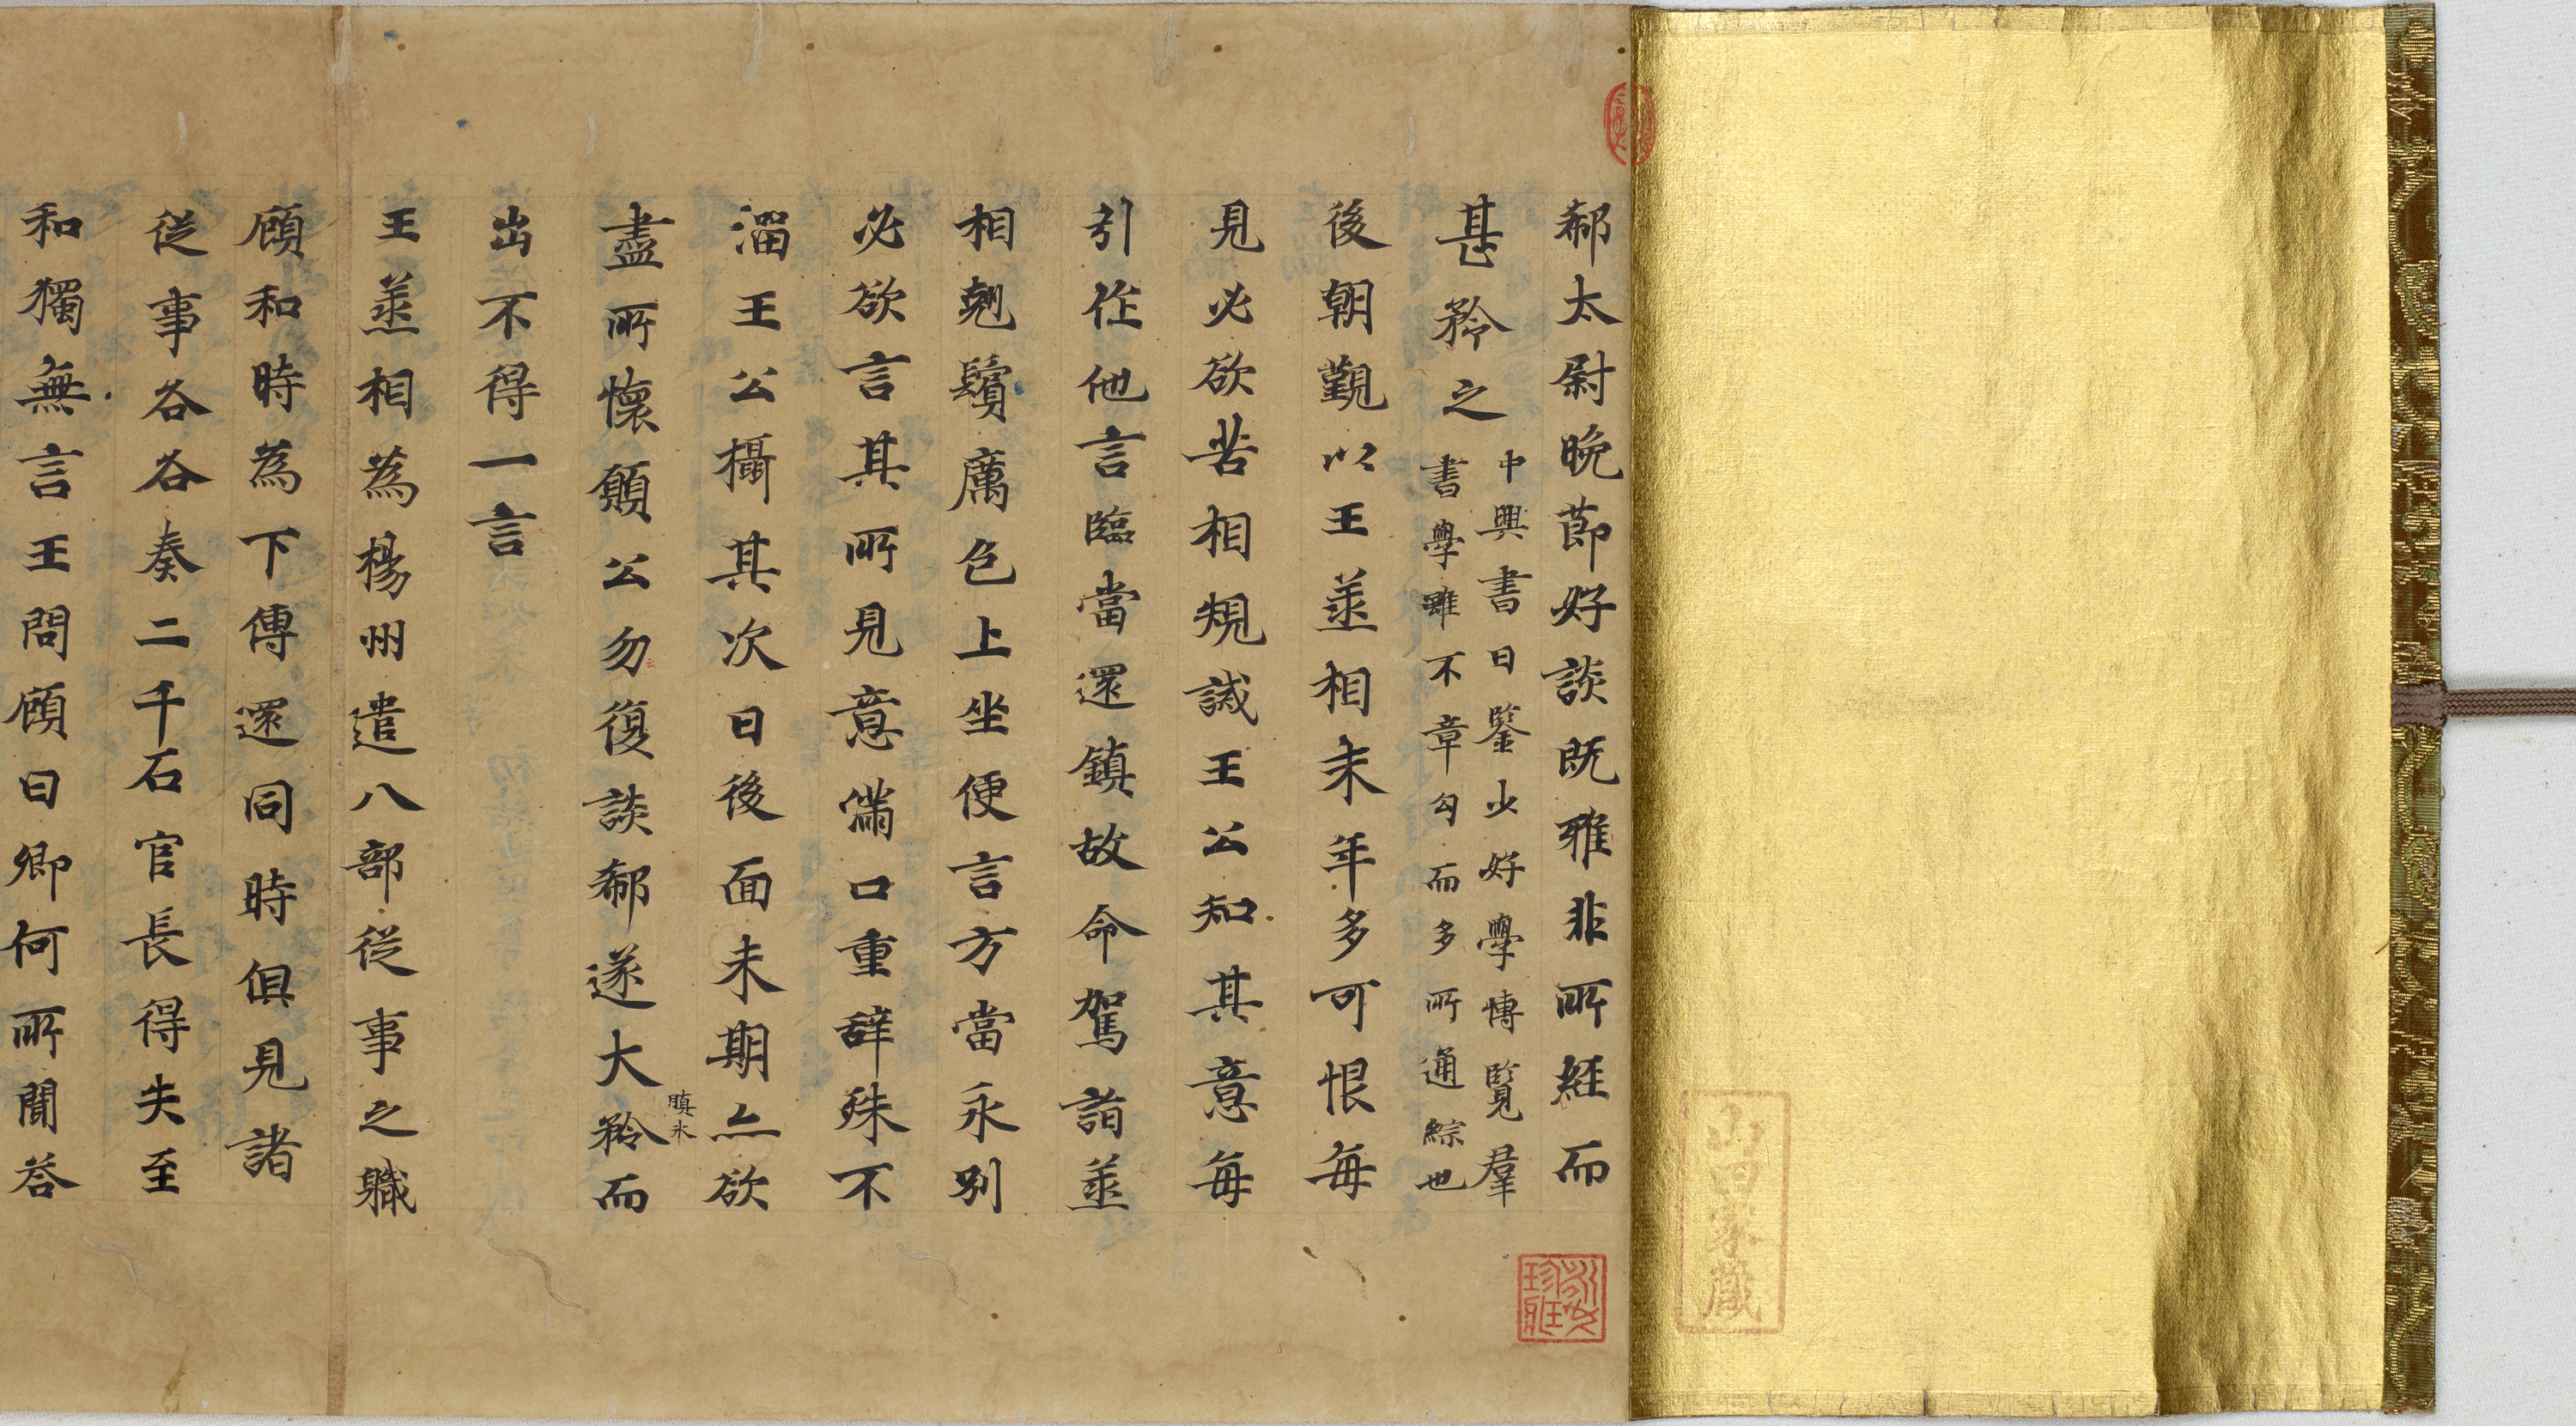 郗太尉晚莭好談既雅非所經而
甚矜之
中興書曰鑒少好學博覽羣
書學雖不章勾而多所通綜也
後朝覲以王丞相末年多可恨每
見必欲苦相規誡王公知其意每
引作他言臨當還鎮故命駕詣丞
相剋鬚厲色上坐便言方當永別
必欲言其所見意滿口重辞殊不
溜王公攝其次曰後面未期亦欲
盡所懷願公勿復談郗遂大矜而
瞋氷
出不得一言
王丞相為楊州遣八部従事之職
顧和時為下傳還同時俱見諸
従事各各奏二千石官長得失至
和獨無言王問顧曰卿何所聞荅
山田家藏